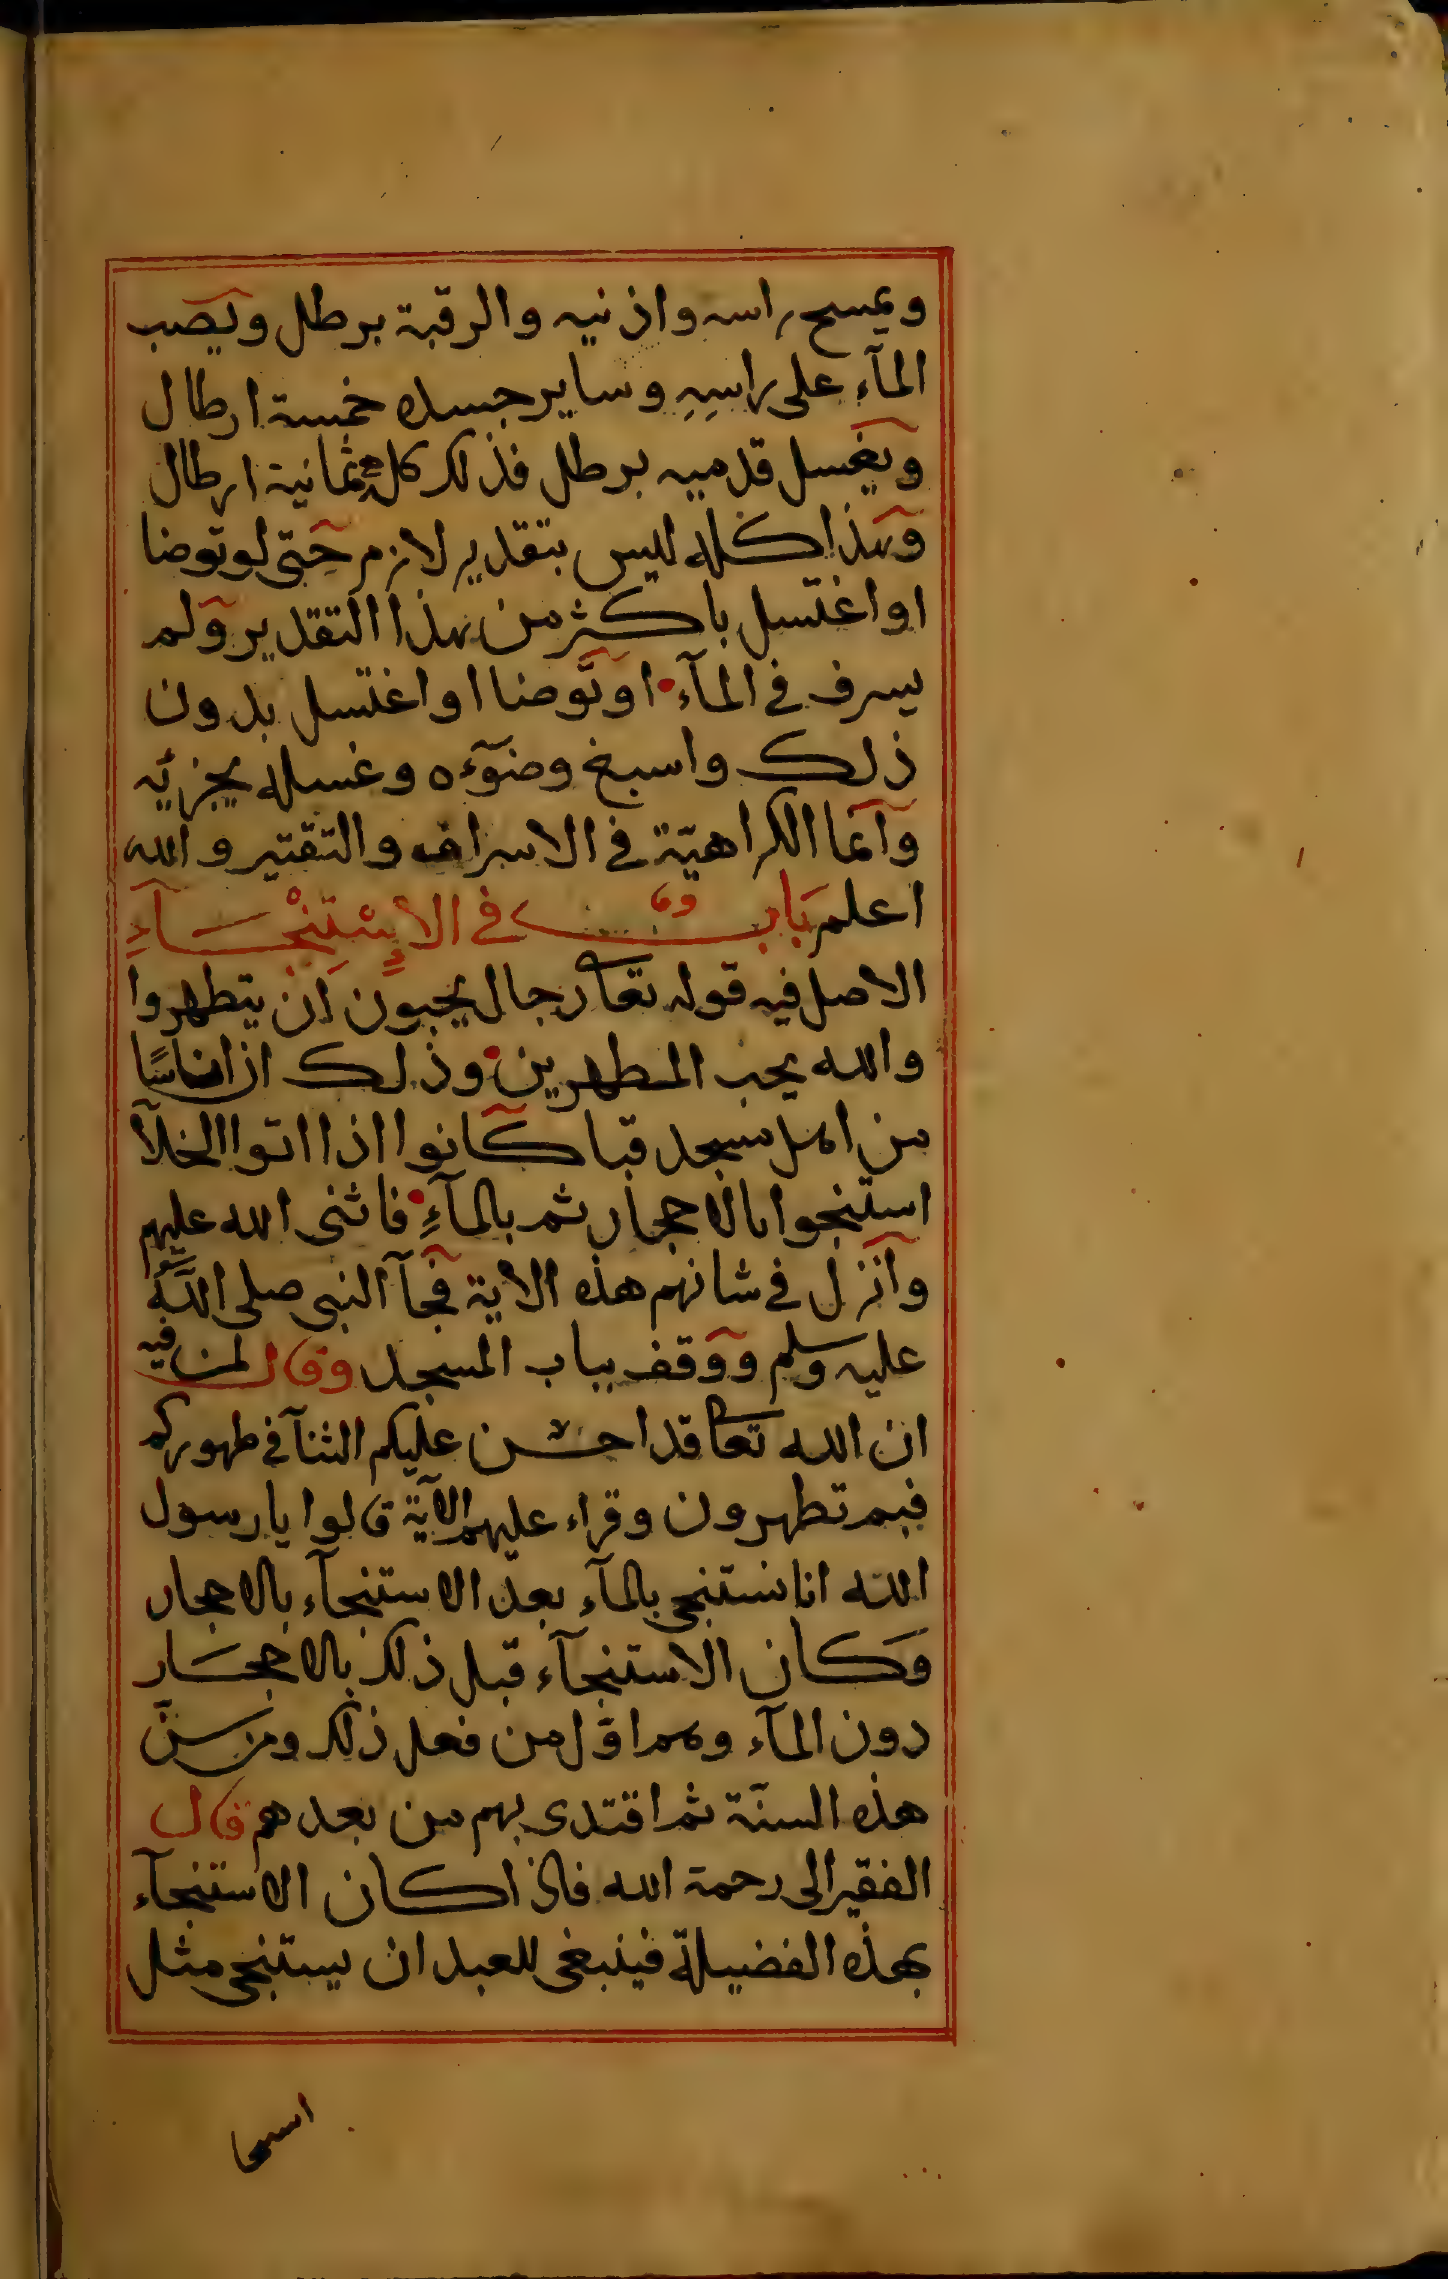 ويمسح راسه واذنيه والرقبة برطل ويصب
المآء على راسِهِ وساير جسده خمسة ارطال
ويغسل قدميه برطل فذلك كله ثمانية ارطال
وهذا كله ليس بتقدير لازم حتى لو توضا
او اغتسل باكثر من هذا التقدير ولم
يسرف في المآء او توضا او اغتسل بدون
ذلك واسبغ وضوٓءه وغسله يجزئه
وانما الكراهيّة في الاسراف والتقتير والله
اعلم باب في الاِسْتِنْجَآءِ
الاصل فيه قوله تعا رجال يحبون ان يتطهروا
والله يحب المطهرين وذلك ان اناسًا
من اهل مسجد قبا كانوا اذا اتوا الخلآ
استنجوا بالاحجار ثم بالمآءِ فاثنى الله عليهم
وانزل في شانهم هذه الاية فجآ النبي صلى اللّه
عليه وسلم ووقف بباب المسجد وقال لمن فيه
ان الله تعا قد احسن عليكم الثنآ في طهوركم
فبم تطهرون وقراء عليهم الآية قالوا يا رسول
الله انا نستنجي بالمآء بعد الاستنجآء بالاحجار
وكان الاستنجآء قبل ذلك بالاحجار
دون المآء وهم اوّل من فعل ذلك ومن سنّ
هذه السنّة ثم اقتدى بهم من بعدهم قال
الفقير الى رحمة الله فاذا كان الاستنجآء
بهذه الفضيلة فينبغي للعبد ان يستنجي مثل